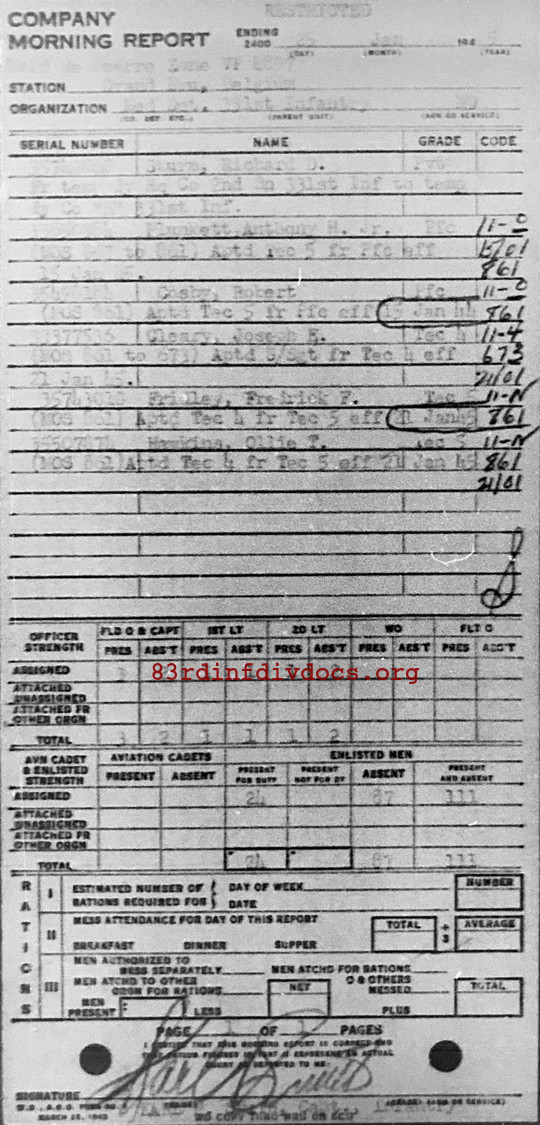 RESTRICTED
COMPANY
MORNING REPORT
ENDING
2400 25 Jan 194 5
(DAY) (MONTH) (YEAR)
Zone VF
STATION Grand Han, Belgium
ORGANIZATION Med Det. 331st Infantry MD
(CO. DET ETC.) (PARENT UNIT) (ARM OR SERVICE)
SERIAL NUMBER NAME GRADE CODE
Richard D. Pvt
Fr temp dy Hq Co 2nd Bn 331st Inf to temp
dy Co 331st Inf.
Plunkett, Anthony H. Jr. Pfc 11-0
(MOS 657 to 861) Aptd Tec 5 fr Pfc eff 15/01
15 Jan 45. 861
Cosby, Robert Pfc 11-0
(MOS 861) Aptd Tec 5 fr Pfc eff 15 Jan 44 861
37377536 Cleary, Joseph E. Tec 4 11-4
(MOS 861 to 673) Aptd S/Sgt fr Tec 4 eff 673
21 Jan 45. 21/01
35743010 Fridley, Fredrick F. Tec 5 11-N
(MOS 861) Aptd Tec 4 fr Tec 5 eff 21 Jan45 861
35507874 Hawkins, Ollie T. Tec 5 11-N
(MOS 861)Aptd Tec 4 fr Tec 5 eff 21 Jan 45 861
21/01
OFFICER STRENGTH FLD O & CAPT 1ST LT 2D LT WO FLT O
PRES ABS'T PRES ABS'T PRES ABS'T PRES ABS'T PRES ABS'T
ASSIGNED 3
83rdinfdivdocs.org
ATTACHED
UNASSIGNED
ATTACHED FR
OTHER ORGN
TOTAL 3 2 1 1 2
AVN CADET
& ENLISTED
STRENGTH
AVIATION CADETS ENLISTED MEN
PRESENT ABSENT PRESENT FOR DUTY PRESENT NOT FOR DY ABSENT PRESENT AND ABSENT
ASSIGNED 24 87 111
ATTACHED
UNASSIGNED
ATTACHED FR
OTHER ORGN
TOTAL 24 87 111
RATIONS
I ESTIMATED NUMBER OF DAY OF WEEK NUMBER
RATIONS REQUIRED FOR DATE
II MESS ATTENDANCE FOR DAY OF THIS REPORT TOTAL ÷ 3 AVERAGE
BREAKFAST DINNER SUPPER
III MEN AUTHORIZED TO
MESS SEPARATELY MEN ATCHD FOR RATIONS
MEN ATCHD TO OTHER
ORGN FOR RATIONS NET O & OTHERS MESSED TOTAL
MEN PRESENT LESS PLUS
PAGE 1 OF 1 PAGES
I CERTIFY THAT THIS MORNING REPORT IS CORRECT AND
SIGNATURE
W.D., A.G.O. FORM NO.
MARCH 25, 1943
Capt Infantry